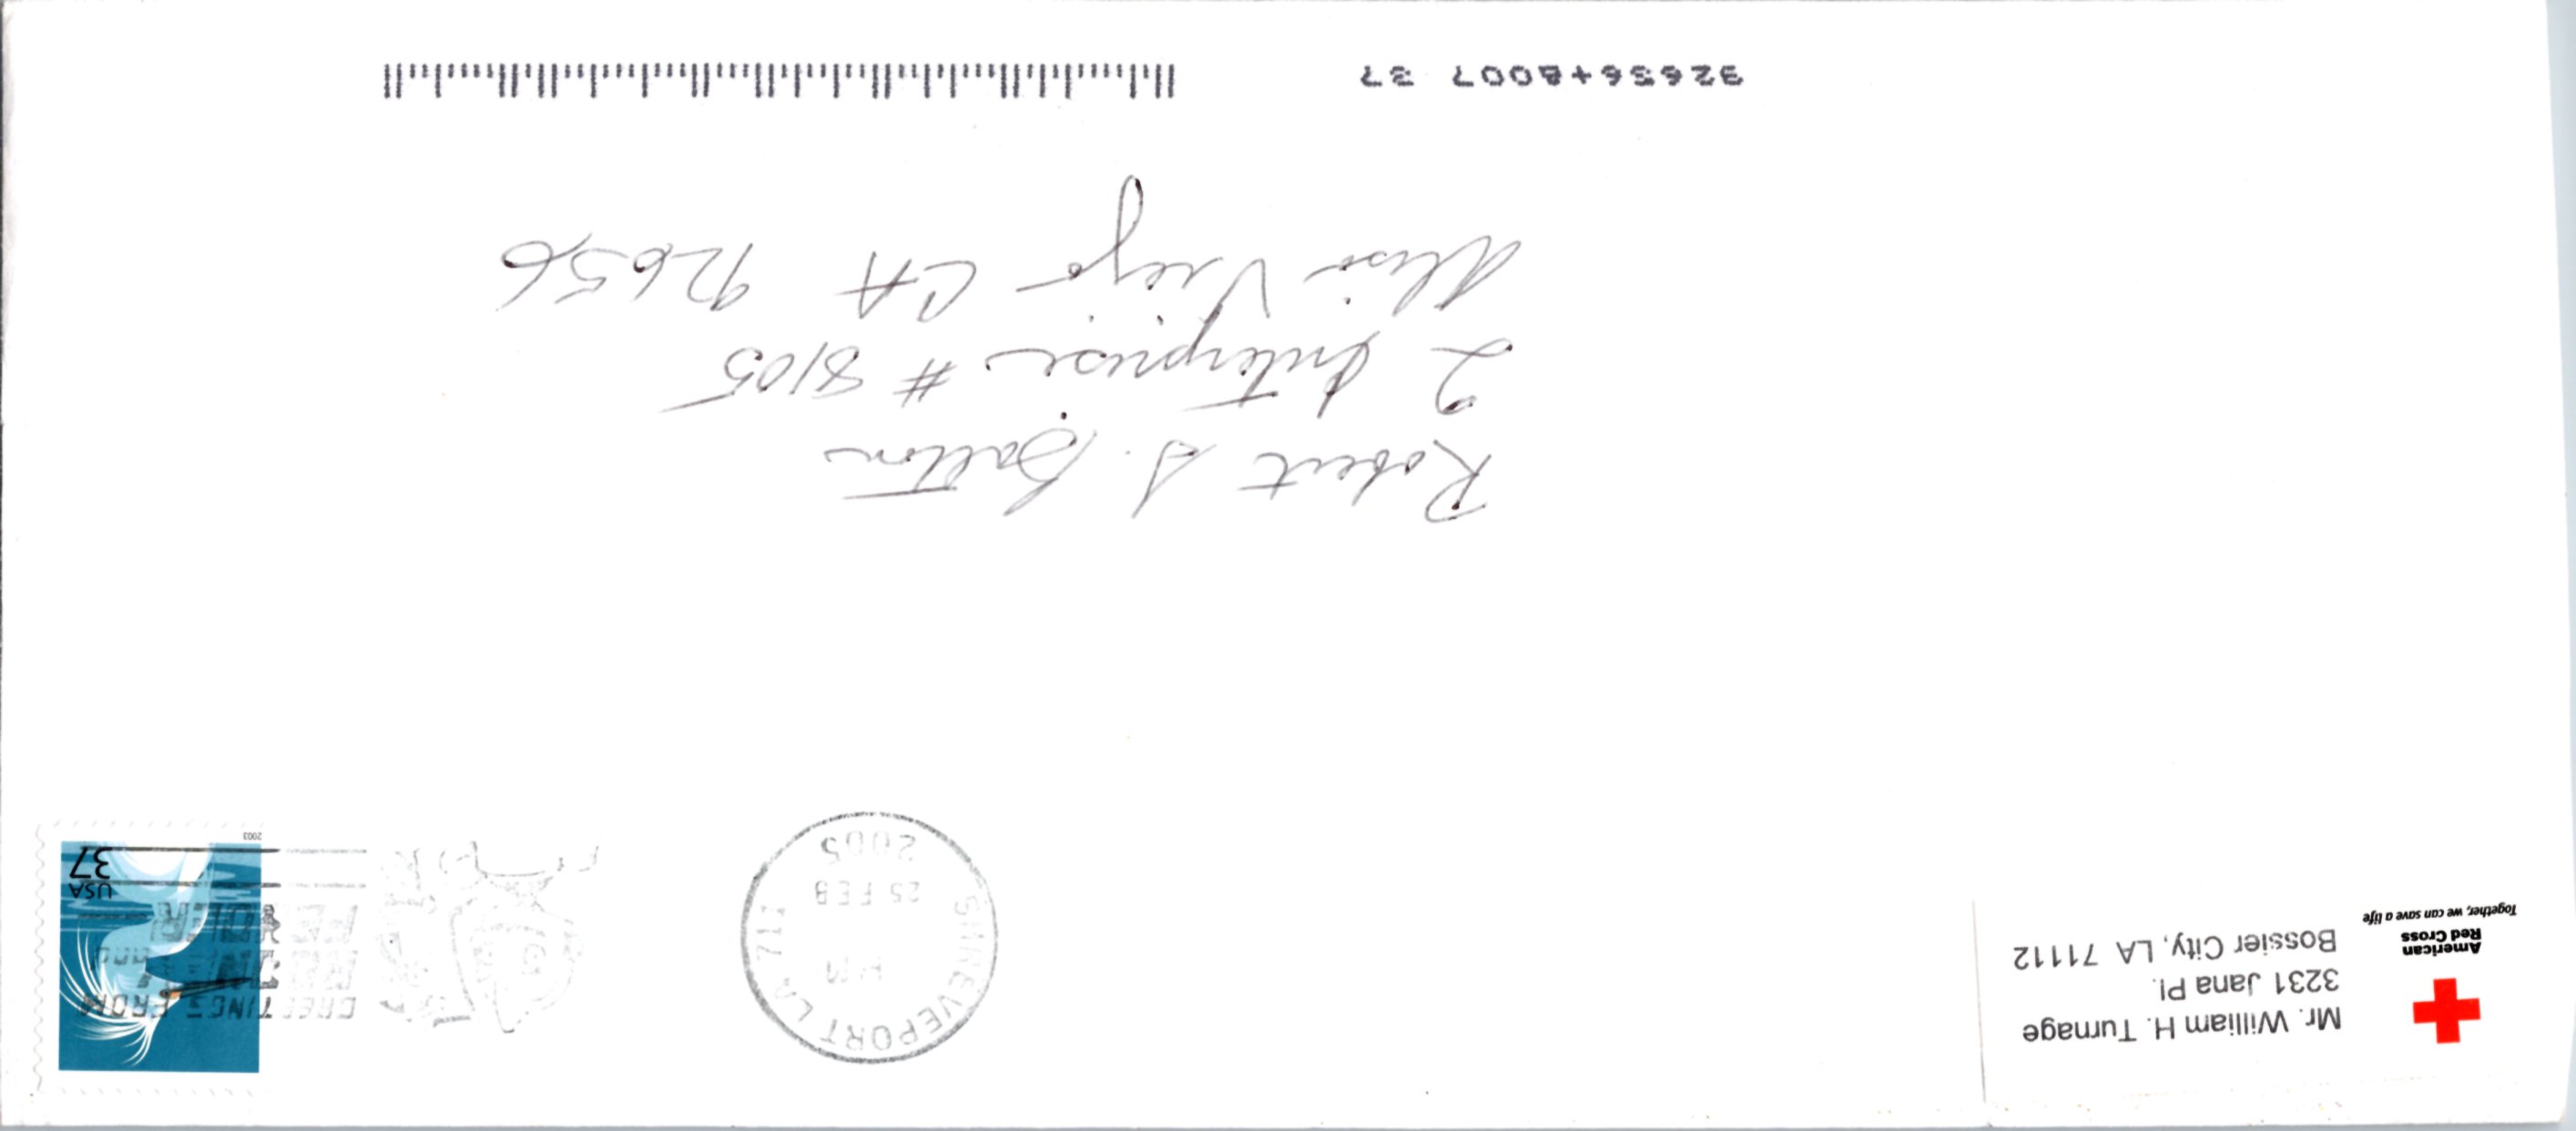 American
Red Cross
Together, we can save a life
Mr. William H. Turnage
3231 Jana Pl.
Bossier City, LA 71112
SHREVEPORT LA 711
PM
25 FEB
2005
GREETINGS FROM
USA
37
2003
Robert S.
2 Enterprise # 8105
Aliso Viejo CA 92656
92656+8007 37